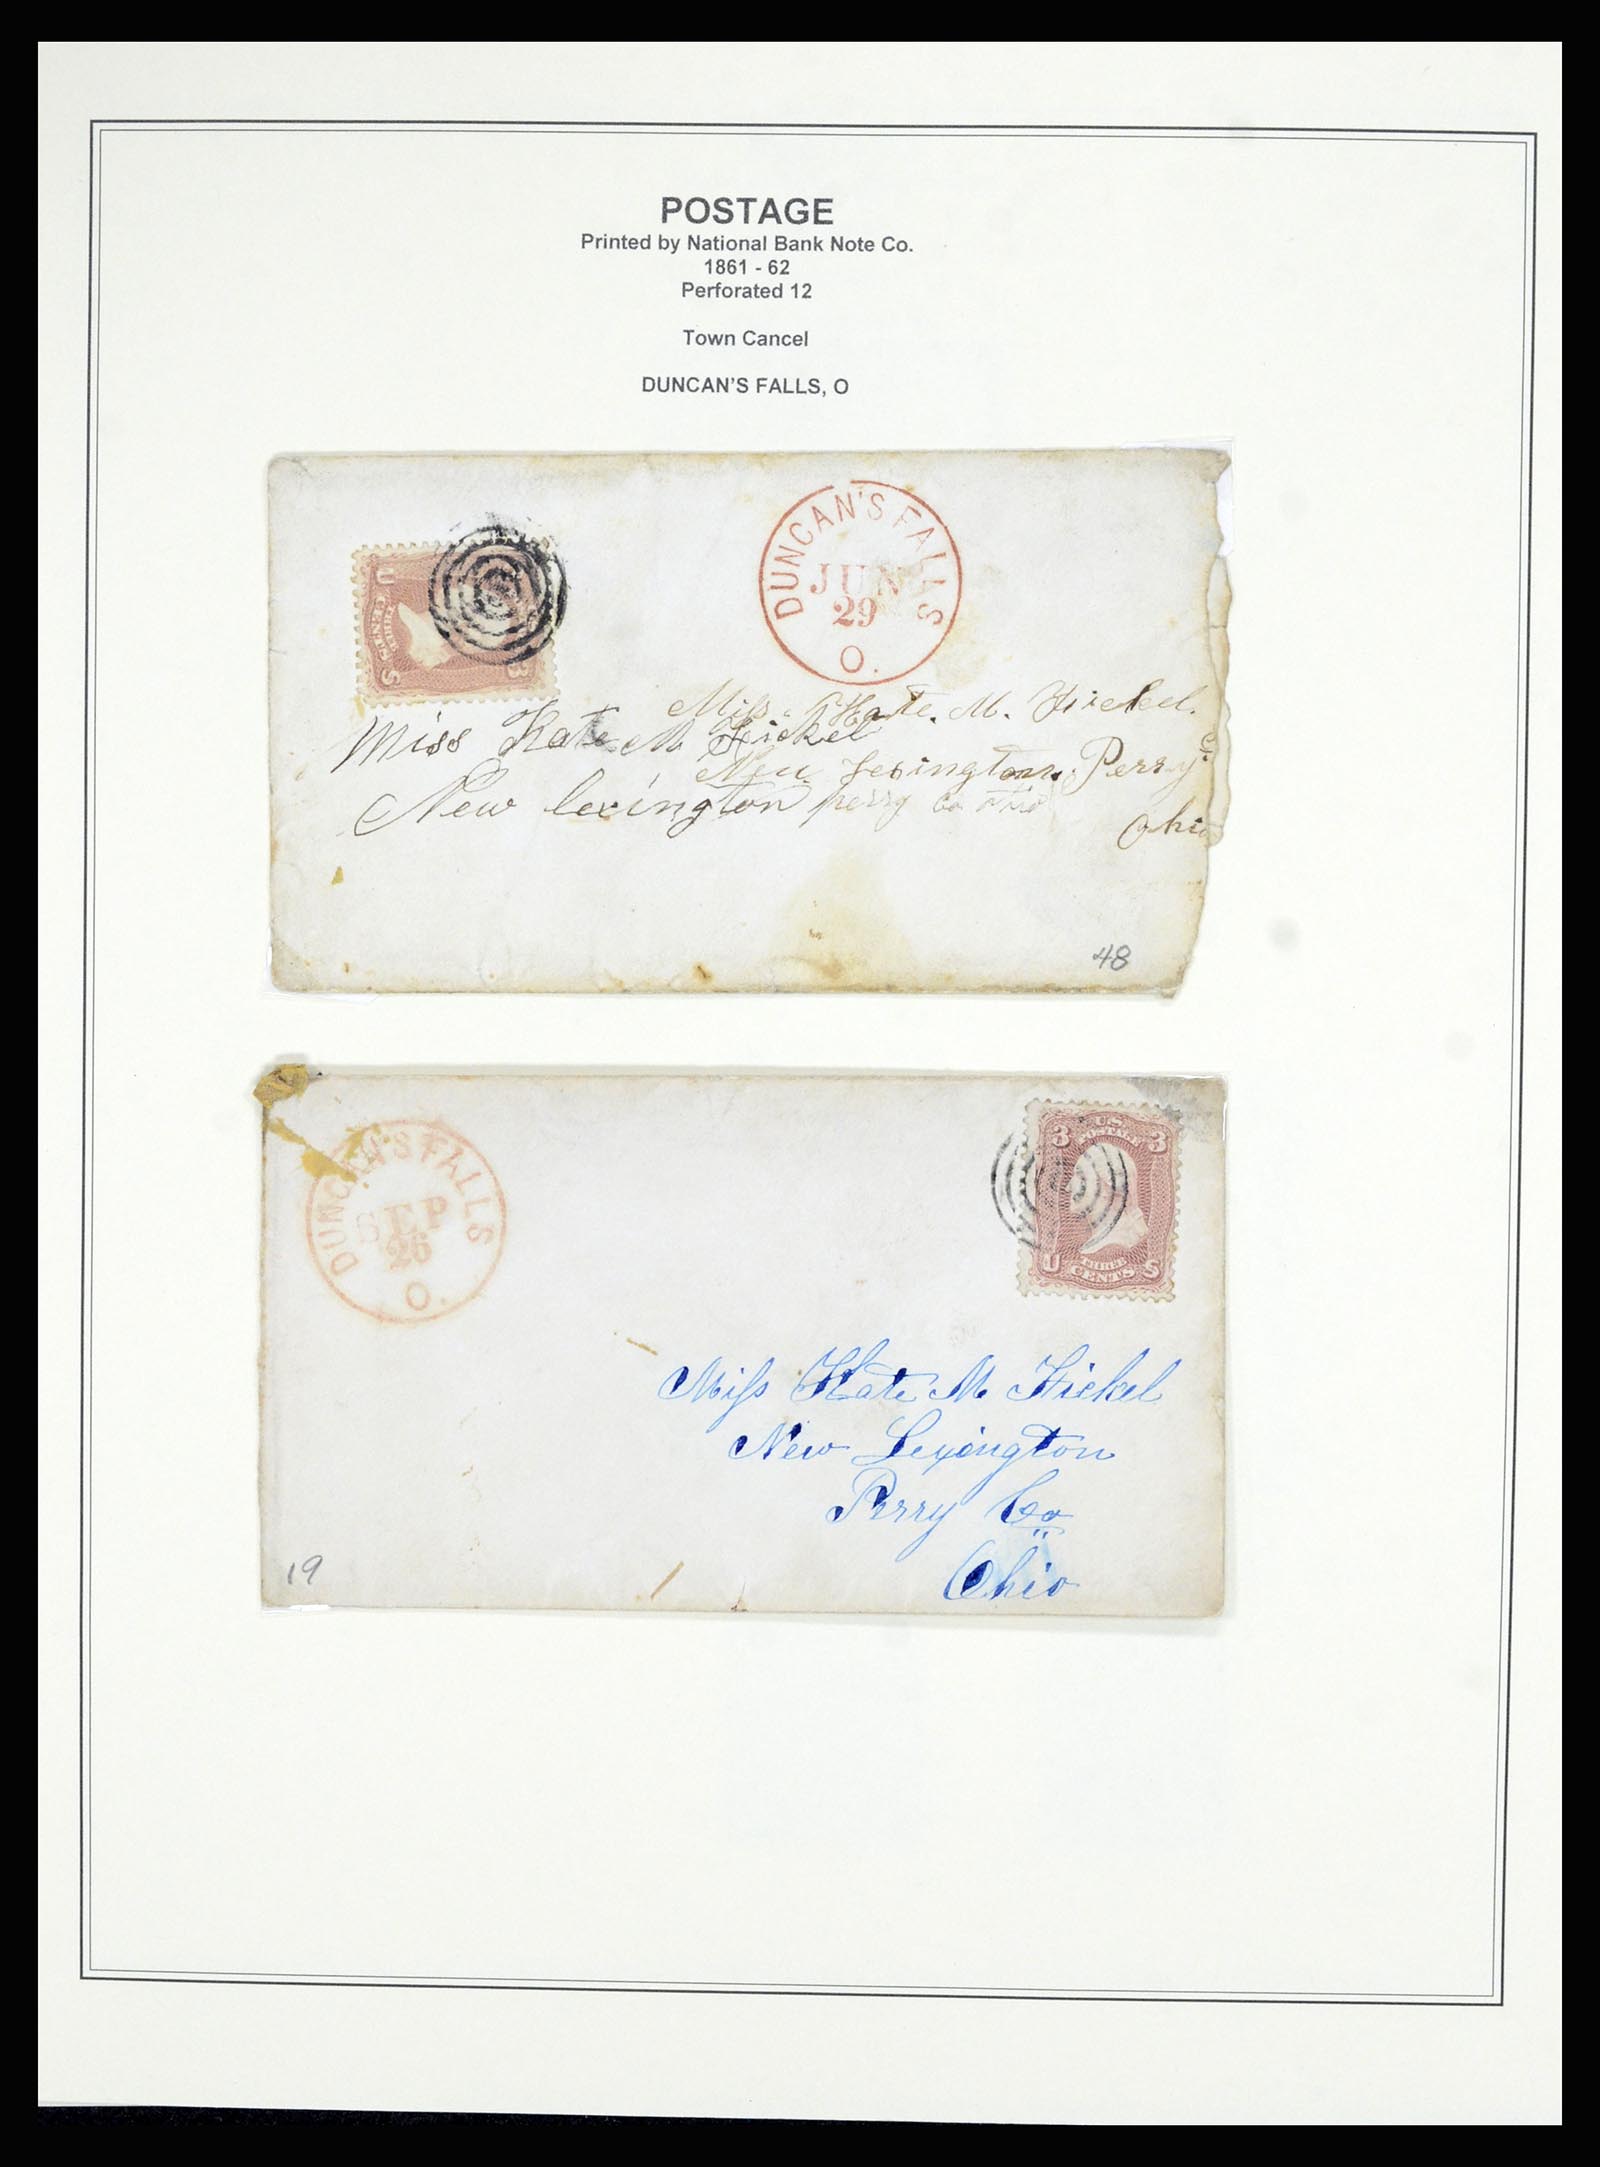 POSTAGE
Printed by National Bank Note Co.
1861 - 62
Perforated 12
Town Cancel
DUNCAN'S FALLS, O
DUNCAN'S FALLS
JUN
29
O.
U 3
THREE
CENTS
S
Miss Kate. M. Hickel.
Miss Kate M Hickel
New Lexington. Perry
New lexington perry Co ohio
Ohio
48
DUNCAN'S FALLS
SEP
26
O.
3 U.S. 3
POSTAGE
THREE
U CENTS S
Miſs Kate M Hickel
New Lexington
Perry Co
Ohio
19